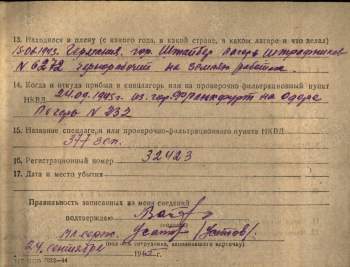 13. Находился в плену (с какого года, в какой стране, в каком лагере и что делал)
15.06.1943. Германия, гор. Лагерь штрафников
N 6272 чернорабочий на земляных работах.
14. Когда и откуда прибыл в спецлагерь или на проверочно-фильтрационный пункт
НКВД 24.09.1945г из гор. Франкфурт на Одере
Лагерь N 232
15. Название спецлагеря или проверочно-фильтрационного пункта НКВД
377 зсп.
16. Регистрационный номер 32423
17. Дата и место убытия
Правильность записанных на меня сведений
подтверждаю
мл. серж.
24 сентября 1945 г.